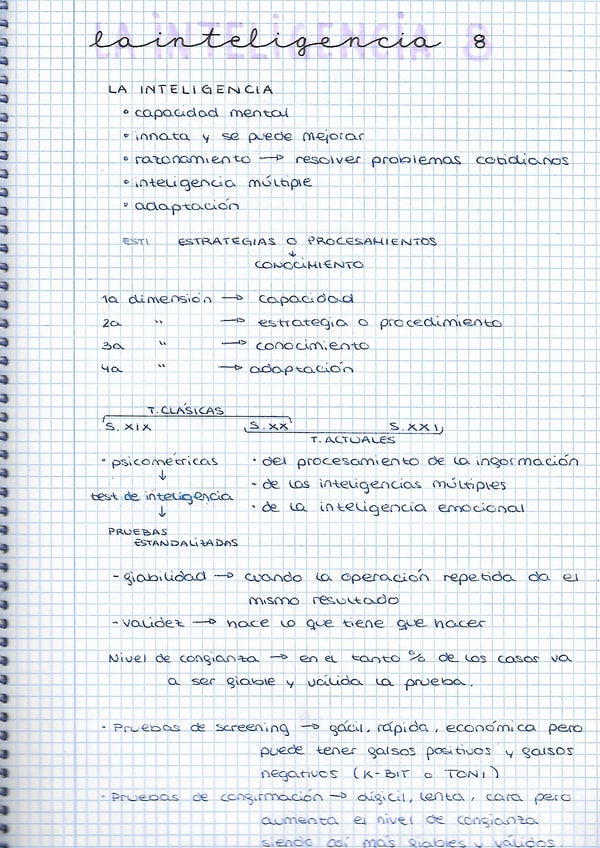 la inteligencia 8
LA INTELIGENCIA
• capacidad mental
• innata y se puede mejorar
• razonamiento → resolver problemas cotidianos
• inteligencia múltiple
• adaptación
ESTI ESTRATEGIAS O PROCESAMIENTOS
↓
CONOCIMIENTO
1a dimensión → capacidad
2a " → estrategia o procedimiento
3a " → conocimiento
4a " → adaptación
T. CLÁSICAS
S. XIX S. XX S. XXI
T. ACTUALES
• psicométricas • del procesamiento de la información
↓ • de las inteligencias múltiples
test de inteligencia • de la inteligencia emocional
↓
PRUEBAS
ESTANDALIZADAS
- fiabilidad → cuando la operación repetida da el
mismo resultado
- validez → hace lo que tiene que hacer
Nivel de confianza → en el tanto % de los casos va
a ser fiable y válida la prueba.
- Pruebas de screening → fácil, rápida, económica pero
puede tener falsos positivos y falsos
negativos (K-BIT o TONI)
- Pruebas de confirmación → difícil, lenta, cara pero
aumenta el nivel de confianza
siendo así más fiables y válidos.